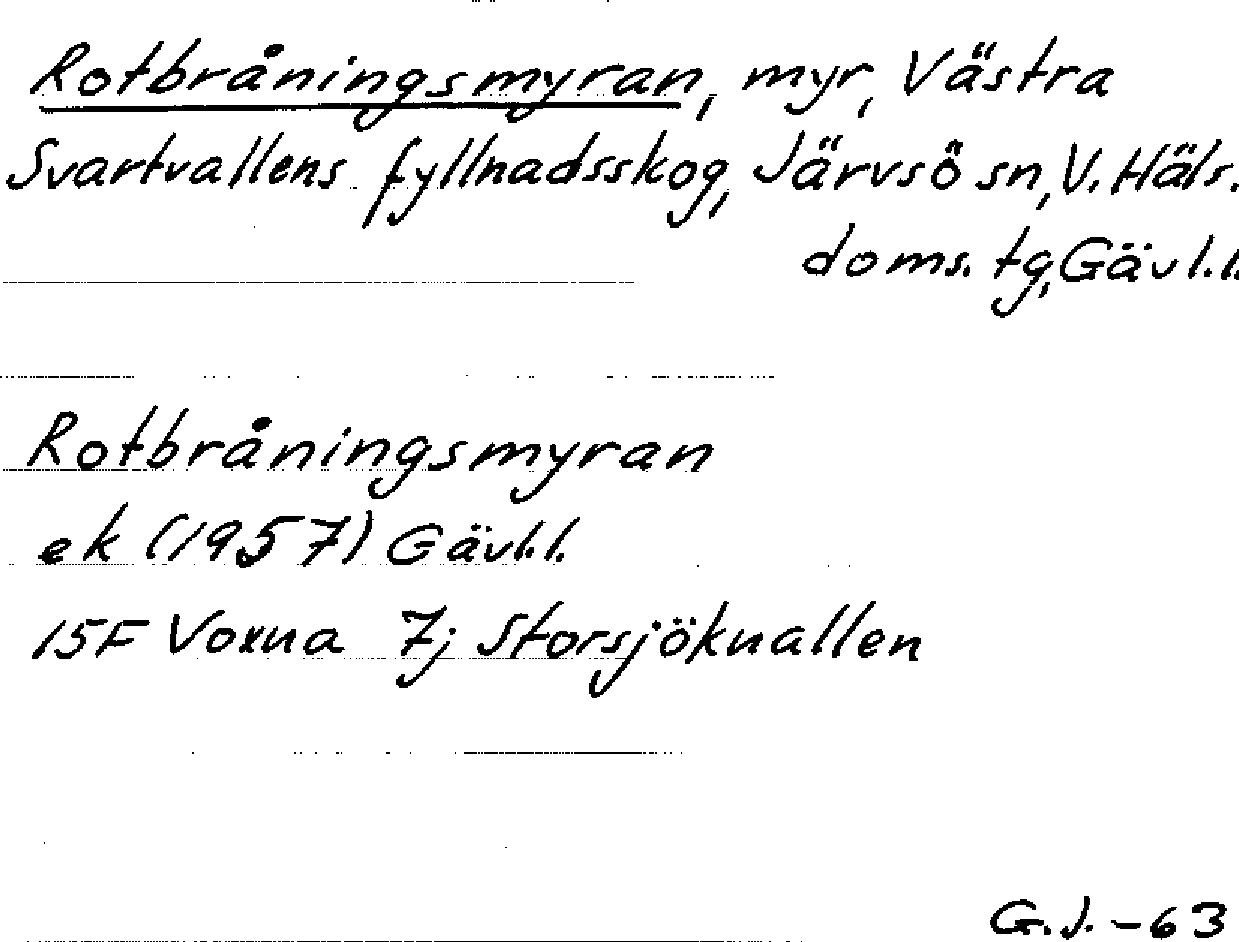 Rotbråningsmyran, myr, Västra
Svartvallens fyllnadsskog, Järvsö sn, V. Häls.
doms. tg, Gävl. l.
Rotbråningsmyran
ek (1957) Gävl. l.
15F Voxna 7j Storsjöknallen
G.J. -63